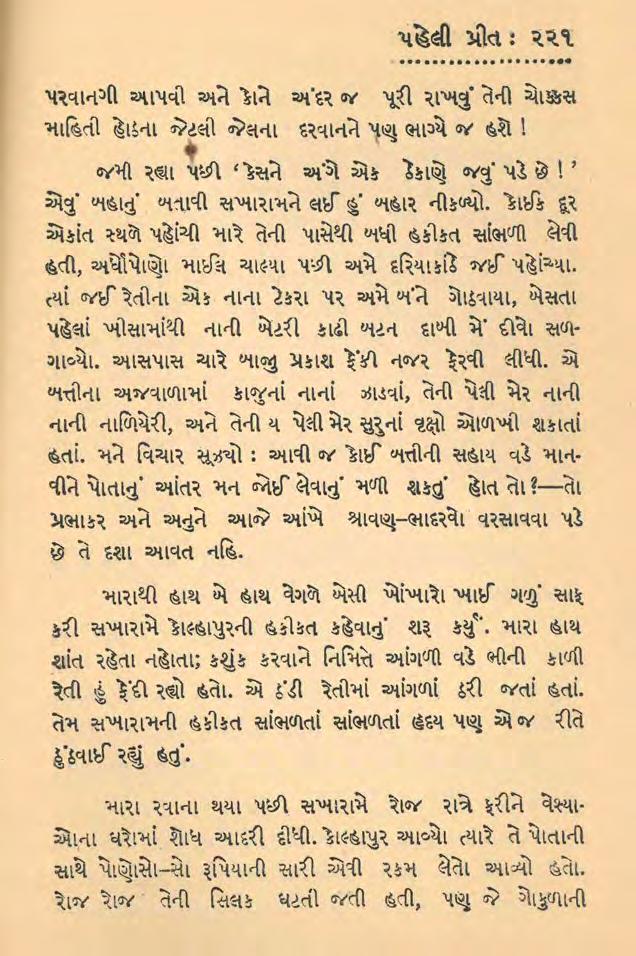 પહેલી પ્રીત : ૨૨૧
પરવાનગી આપવી અને કોને અંદર જ પૂરી રાખવું તેની ચોક્કસ
માહિતી હોડના જેટલી જેલના દરવાનને પણ ભાગ્યે જ હશે !
જમી રહ્યા પછી ‘ કેસને અંગે એક ઠેકાણે જવું પડે છે ! ’
એવું બહાનું બતાવી સખારામને લઈ હું બહાર નીકળ્યો. કોઈક દૂર
એકાંત સ્થળે પહોંચી મારે તેની પાસેથી બધી હકીકત સાંભળી લેવી
હતી, અર્ધોપોણો માઈલ ચાલ્યા પછી અમે દરિયાકાંઠે જઈ પહોંચ્યા.
ત્યાં જઈ રેતીના એક નાના ટેકરા પર અમે બંને ગોઠવાયા, બેસતા
પહેલાં ખીસામાંથી નાની બેટરી કાઢી બટન દાબી મેં દીવો સળ-
ગાવ્યો. આસપાસ ચારે બાજુ પ્રકાશ ફેંકી નજર ફેરવી લીધી. એ
બત્તીના અજવાળામાં કાજુનાં નાનાં ઝાડવાં, તેની પેલી મેર નાની
નાની નાળિયેરી, અને તેની ય પેલી મેર સુરુનાં વૃક્ષો ઓળખી શકાતાં
હતાં. મને વિચાર સૂઝયો : આવી જ કોઈ બત્તીની સહાય વડે માન-
વીને પોતાનું આંતર મન જોઈ લેવાનું મળી શકતું હોત તો ?—તો
પ્રભાકર અને અનુને આજે આંખે શ્રાવણ–ભાદરવો વરસાવવા પડે
છે તે દશા આવત નહિ.
મારાથી હાથ બે હાથ વેગળે બેસી ખોંખારો ખાઈ ગળું સાફ
કરી સખારામે કોલ્હાપુરની હકીકત કહેવાનું શરૂ કર્યું. મારા હાથ
શાંત રહેતા નહોતા; કશુંક કરવાને નિમિત્તે આંગળી વડે ભીની કાળી
રેતી હું ફેંદી રહ્યો હતો. એ ઠંડી રેતીમાં આંગળાં ઠરી જતાં હતાં.
તેમ સખારામની હકીકત સાંભળતાં સાંભળતાં હૃદય પણ એ જ રીતે
ઠુંઠવાઈ રહ્યું હતું.
મારા રવાના થયા પછી સખારામે રોજ રાત્રે ફરીને વેશ્યા-
ઓના ઘરોમાં શોધ આદરી દીધી. કોલ્હાપુર આવ્યો ત્યારે તે પોતાની
સાથે પોણોસો–સો રૂપિયાની સારી એવી રકમ લેતો આવ્યો હતો.
રોજ રોજ તેની સિલક ઘટતી જતી હતી, પણ જે ગોકુળાની